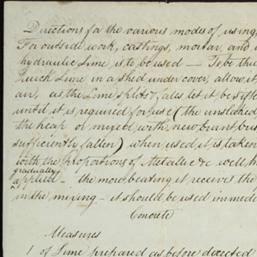 Directions for the various modes of using
For outside work, castings, mortar, and
hydraulic Lime, is to be used — To be thus
Quick Lime in a shed under cover, allow it
air, as the Lime splits & falls let it be
until it is required for use (the unslacked
the heap of maybe with new
sufficiently fallen) when used, it is taken
with the proportions of Metallic &c well
gradually
applied — the more beating it receives the
in the mixing — it should be used immed
Concrete
Measures
1 of Lime prepared as before directed